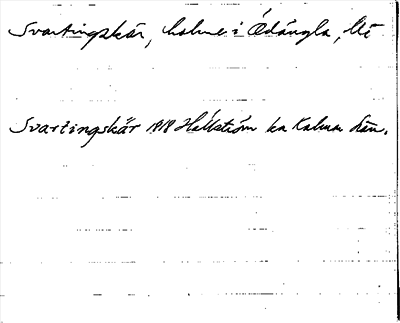 Svartingskär, holme i Ödängla,
Svartingskär 1818 Hällström ka Kalmar län.